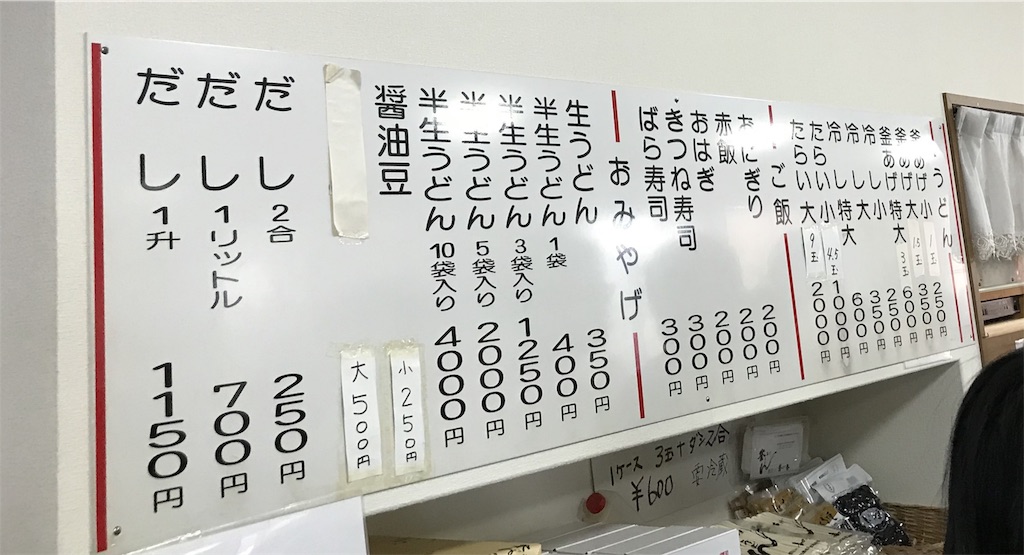 うどん
釜あげ 小 1玉 250円
釜あげ 大 1.5玉 350円
釜あげ 特大 3玉 600円
冷し 小 250円
冷し 大 350円
冷し 特大 600円
たらい 小 4.5玉 1000円
たらい 大 9玉 2000円
ご飯
おにぎり 200円
赤飯 200円
おはぎ 200円
きつね寿司 300円
ばら寿司 300円
おみやげ
生うどん 350円
半生うどん 1袋 400円
半生うどん 3袋入り 1250円
半生うどん 5袋入り 2000円
半生うどん 10袋入り 4000円
醤油豆 小 250円
大 500円
だし 2合 250円
だし 1リットル 700円
だし 1升 1150円
1ケース 3玉+ダシ2合
¥600 要冷蔵